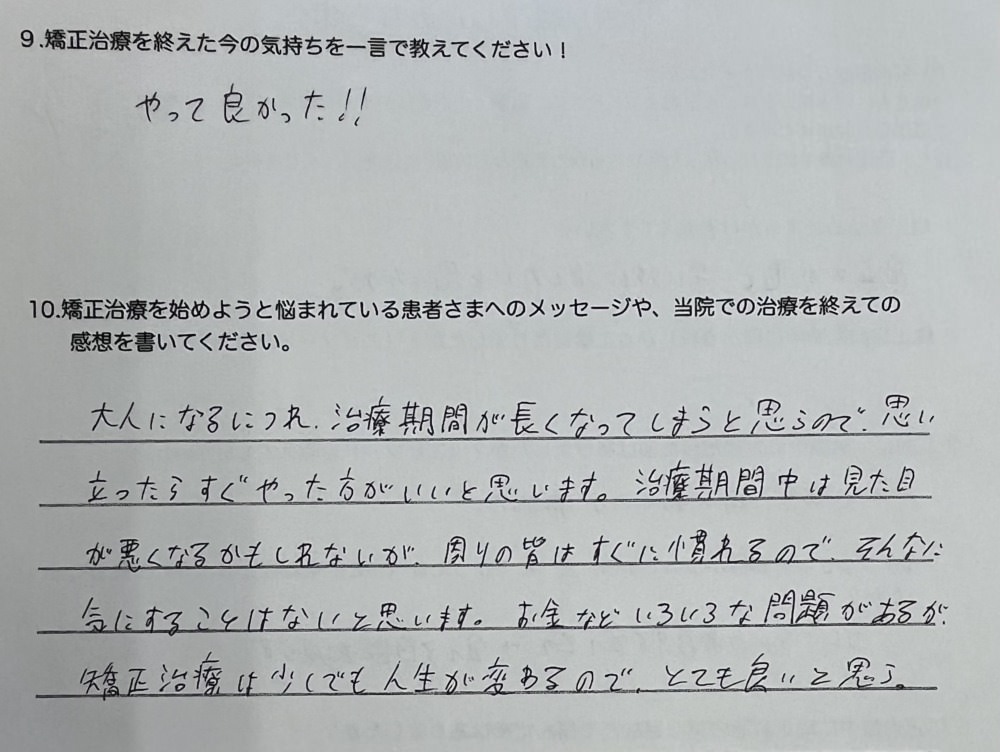 9.矯正治療を終えた今の気持ちを一言で教えてください！
やって良かった!!
10.矯正治療を始めようと悩まれている患者さまへのメッセージや、当院での治療を終えての
感想を書いてください。
大人になるにつれ、治療期間が長くなってしまうと思うので、思い
立ったらすぐやった方がいいと思います。治療期間中は見た目
が悪くなるかもしれないが、周りの皆はすぐに慣れるので、そんなに
気にすることはないと思います。お金などいろいろな問題があるが、
矯正治療は少しでも人生が変わるので、とても良いと思う。